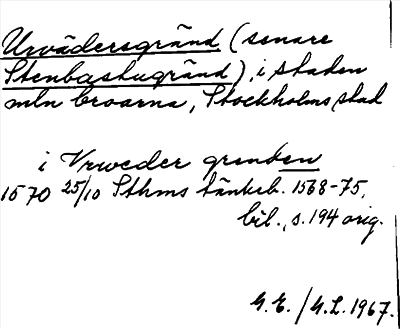 Urvädersgränd (senare
Stenbastugränd), i staden
mln broarna, Stockholms stad
i Vrweder grenden
1570 25/10 Sthms tänkeb. 1568-75,
bil., s. 194 orig.
G.E. / G.L. 1967.